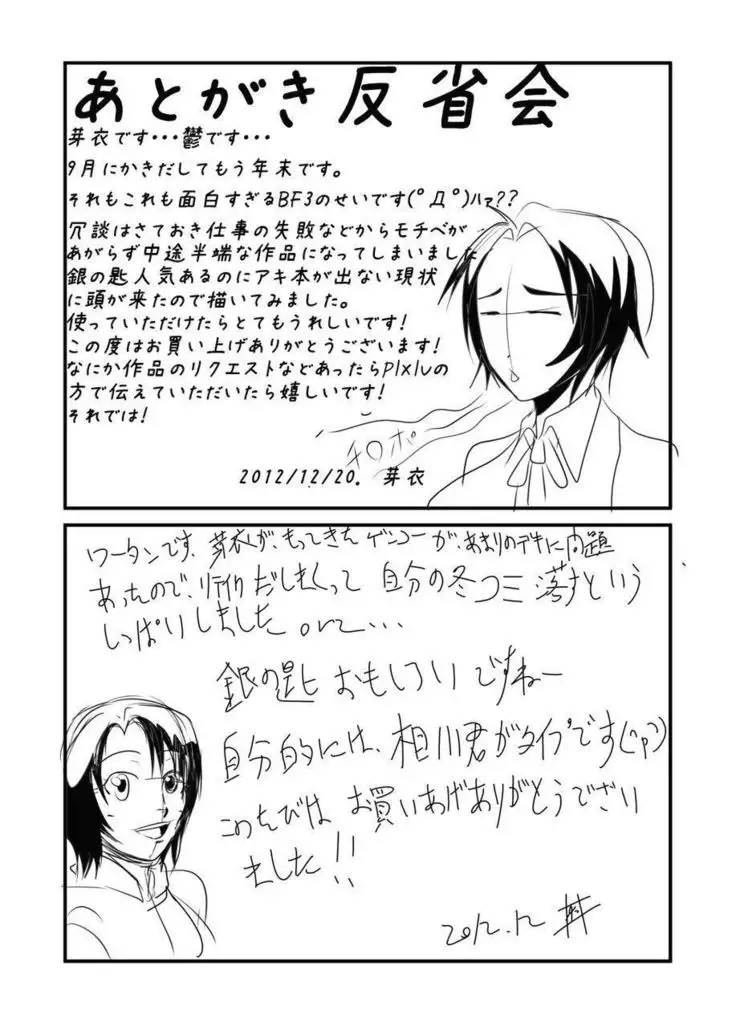 あとがき反省会
芽衣です・・・鬱です・・・
9月にかきだしてもう年末です。
それもこれも面白すぎるBF3のせいです(ﾟДﾟ)ﾊｧ??
冗談はさておき仕事の失敗などからモチベが
あがらず中途半端な作品になってしまいました
銀の匙人気あるのにアキ本が出ない現状
に頭が来たので描いてみました。
使っていただけたらとてもうれしいです!
この度はお買い上げありがとうございます!
なにか作品のリクエストなどあったらPIxIVの
方で伝えていただいたら嬉しいです!
それでは!
チロポ
2012/12/20. 芽衣
ワータンです、芽衣が、もってきたゲンコーが、あまりのデキに問題
あったので、リテイクだしまくって 自分の冬コミ落すという
しっぱいしました orz...
銀の匙おもしろいですねー
自分的には、相川君がタイプです
このたびは お買いあげありがとうござい
ました!!
2012.12